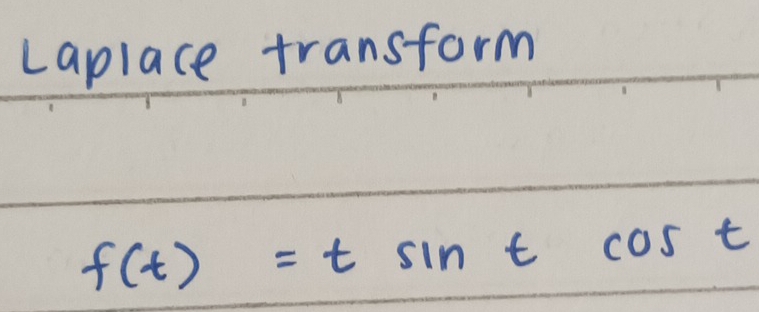 Laplace transform
f(t) = t sin t cos t